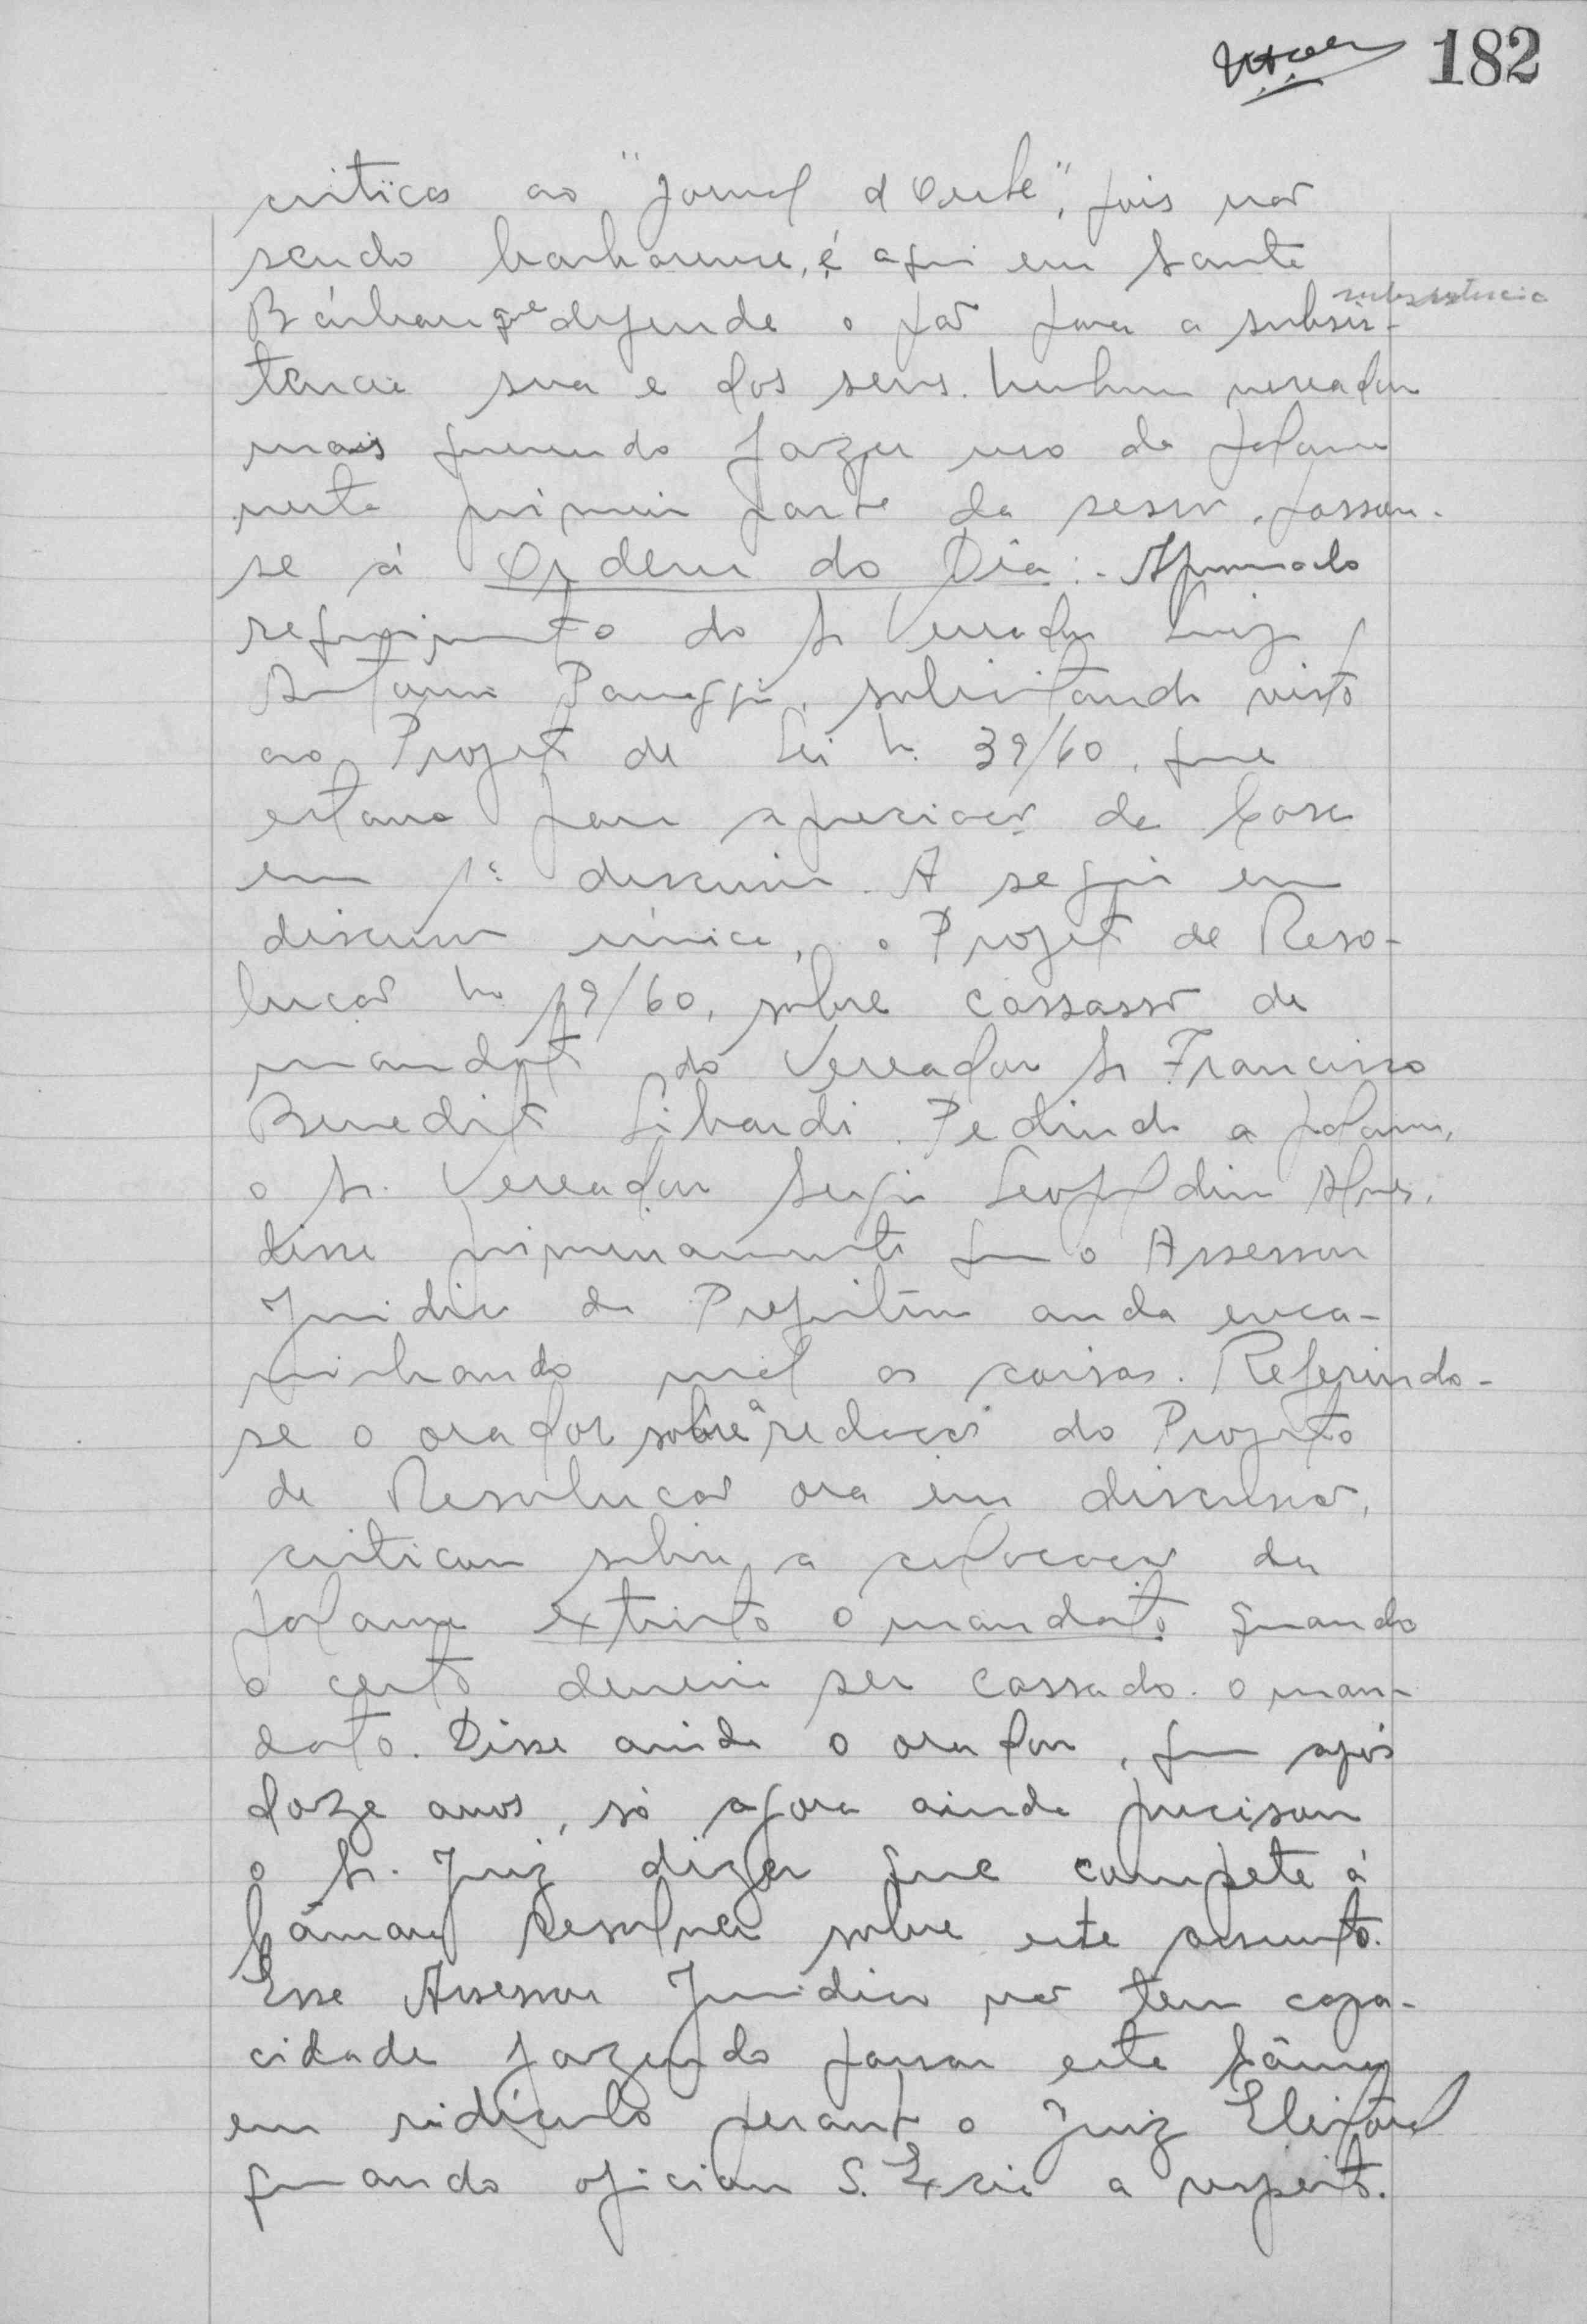 182
criticas ao "Jornal d'Oeste", pois não
sendo barbarense, é aqui em Santa
subsistencia
Bárbara que defende o pão para a subsis-
tencia sua e dos seus. Nenhum vereador
mais querendo fazer uso da palavra
nesta primeira parte da sessão, passou-
se á Ordem do Dia:- Aprovado
requerimento do Sr Vereador Luiz
Antonio Panaggio, solicitando visto
ao Projeto de Lei n. 39/60, que
estava para apreciação da Casa
em 1ª discussão. A seguir em
discussão única, o Projeto de Reso-
lução no 19/60, sobre cassassão de
mandato do Vereador Sr Francisco
Benedito Libardi. Pedindo a palavra,
o Sr. Vereador Sergio Leopoldino Alves,
disse primeiramente que o Assessor
Juridico da Prefeitura anda enca-
minhando mal as coisas. Referindo-
se o orador sobre a redação do Projeto
de Resolução ora em discussão,
criticou sobre a colocação da
palavra extinto o mandato quando
o certo deveria ser cassado o man-
dato. Disse ainda o orador, que após
doze anos, só agora ainda precisou
o Sr. Juiz dizer que compete á
Câmara resolver sobre este assunto.
Esse Assessor Juridico não tem capa-
cidade fazendo passar esta Câmara
em ridículo perante o Juiz Eleitoral
quando oficiou S. Excia a respeito.